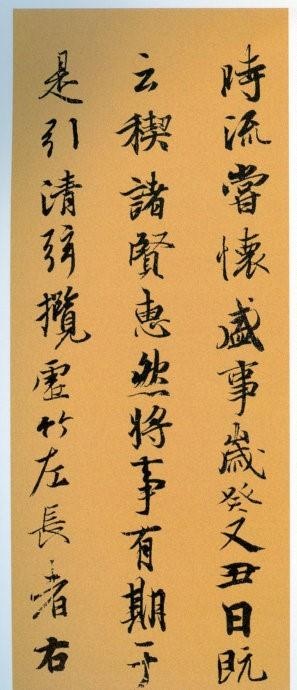 時流嘗懷盛事歲癸又丑日既
云稧諸賢惠然將事有期于
是引清弦攬虛竹左長者右